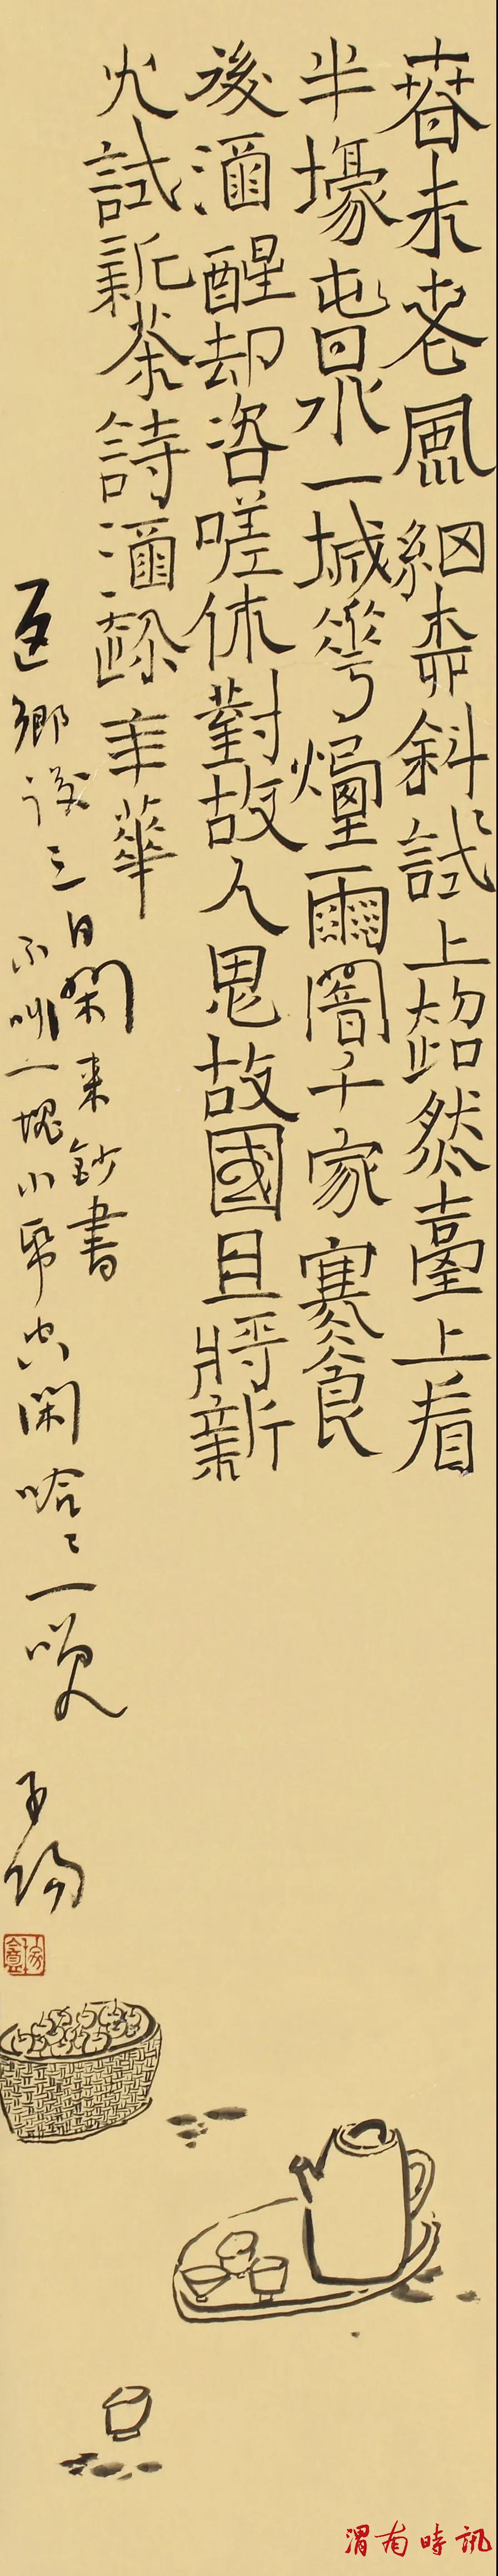 春未老風細柳斜〻試上超然臺上看
半壕春水一城花煙雨闇千家寒食
後酒醒却咨嗟休對故人思故國且將新
火試新茶詩酒趁年華
返鄉後三日閑来鈔書
不叫一塊小帋空閑哈〻一笑
渭南時訊